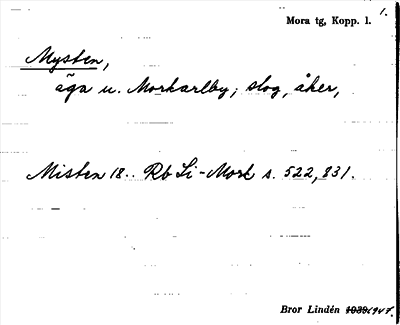 1.
Mora tg, Kopp. l.
Mysten,
äga u. Morkarlby; slog, åker,
Misten 18.. Rb Li-Mork s. 522, 831.
Bror Lindén 1939 1947.